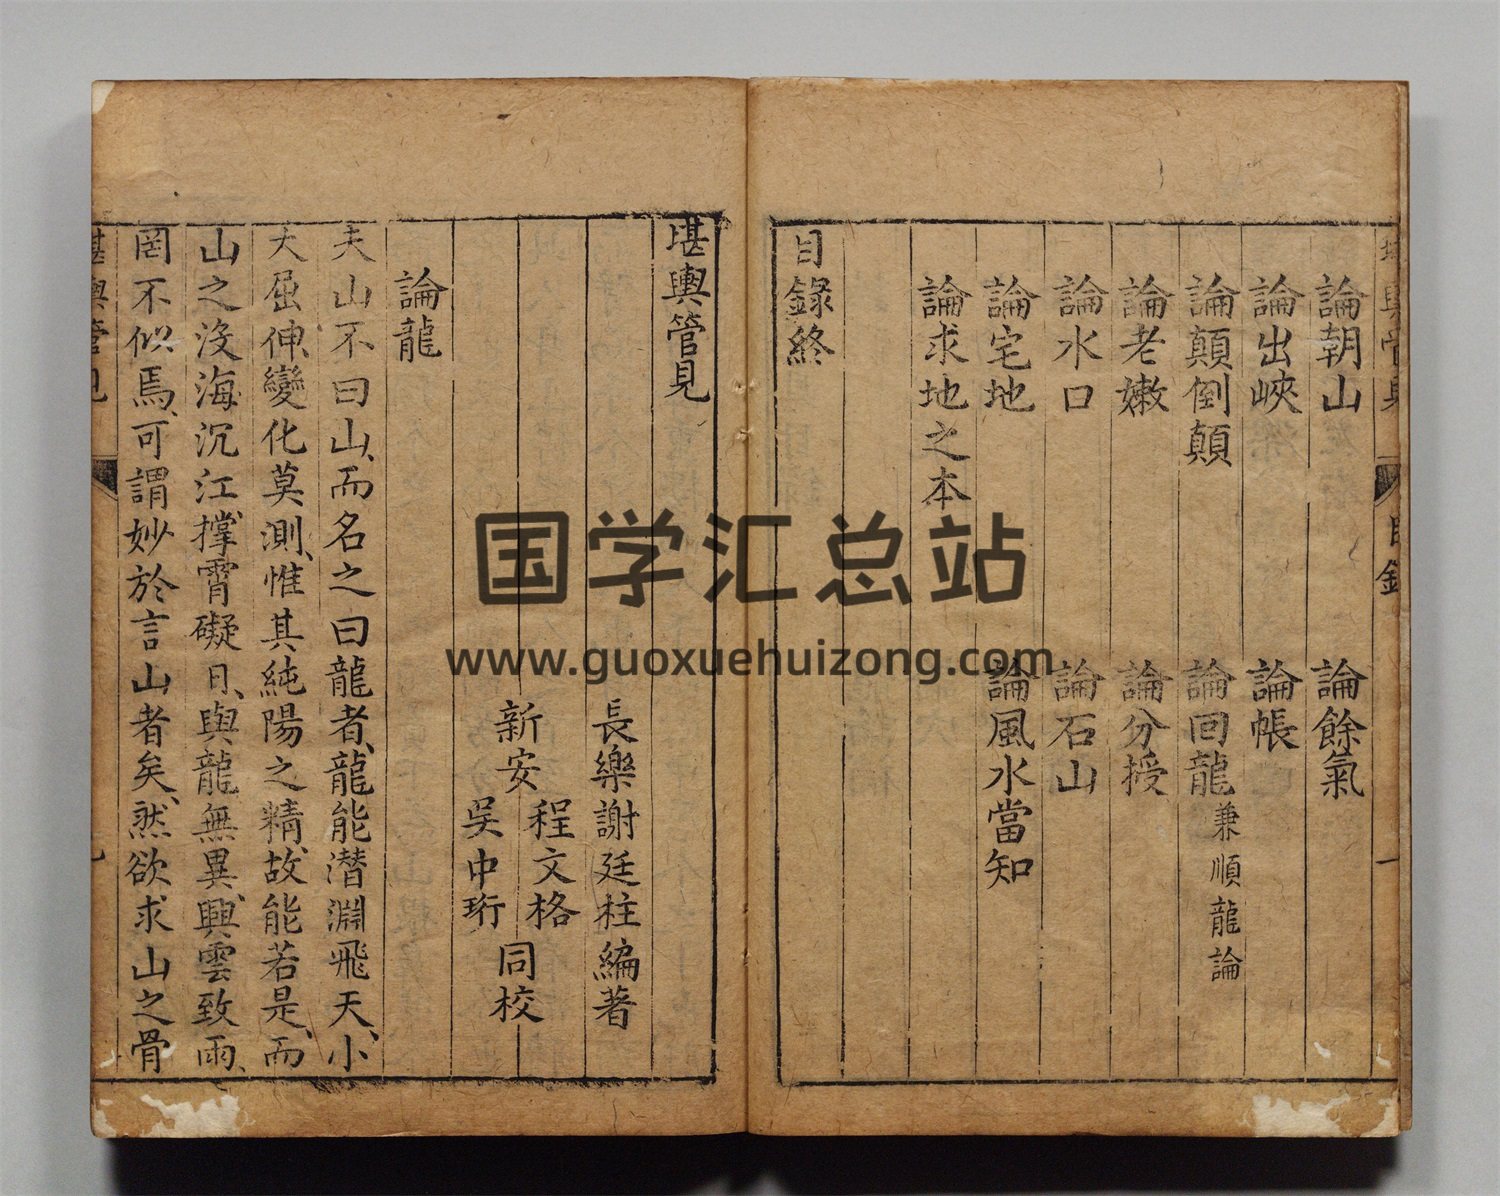 論朝山　論餘氣
論出峽　論帳
論顛倒顛　論回龍兼順龍論
論老嫩　論分授
論水口　論石山
論宅地　論風水當知
論求地之本
目錄終
目錄
一
堪輿管見
長樂謝廷柱編著
新安程文格
吳中珩同校
論龍
夫山不曰山、而名之曰龍者、龍能潛淵飛天、小
大屈伸、變化莫測、惟其純陽之精、故能若是、而
山之沒海沉江、撑霄礙日、與龍無異、興雲致雨、
罔不似焉、可謂妙於言山者矣、然欲求山之骨
堪輿管見
国学汇总站
www.guoxuehuizong.com